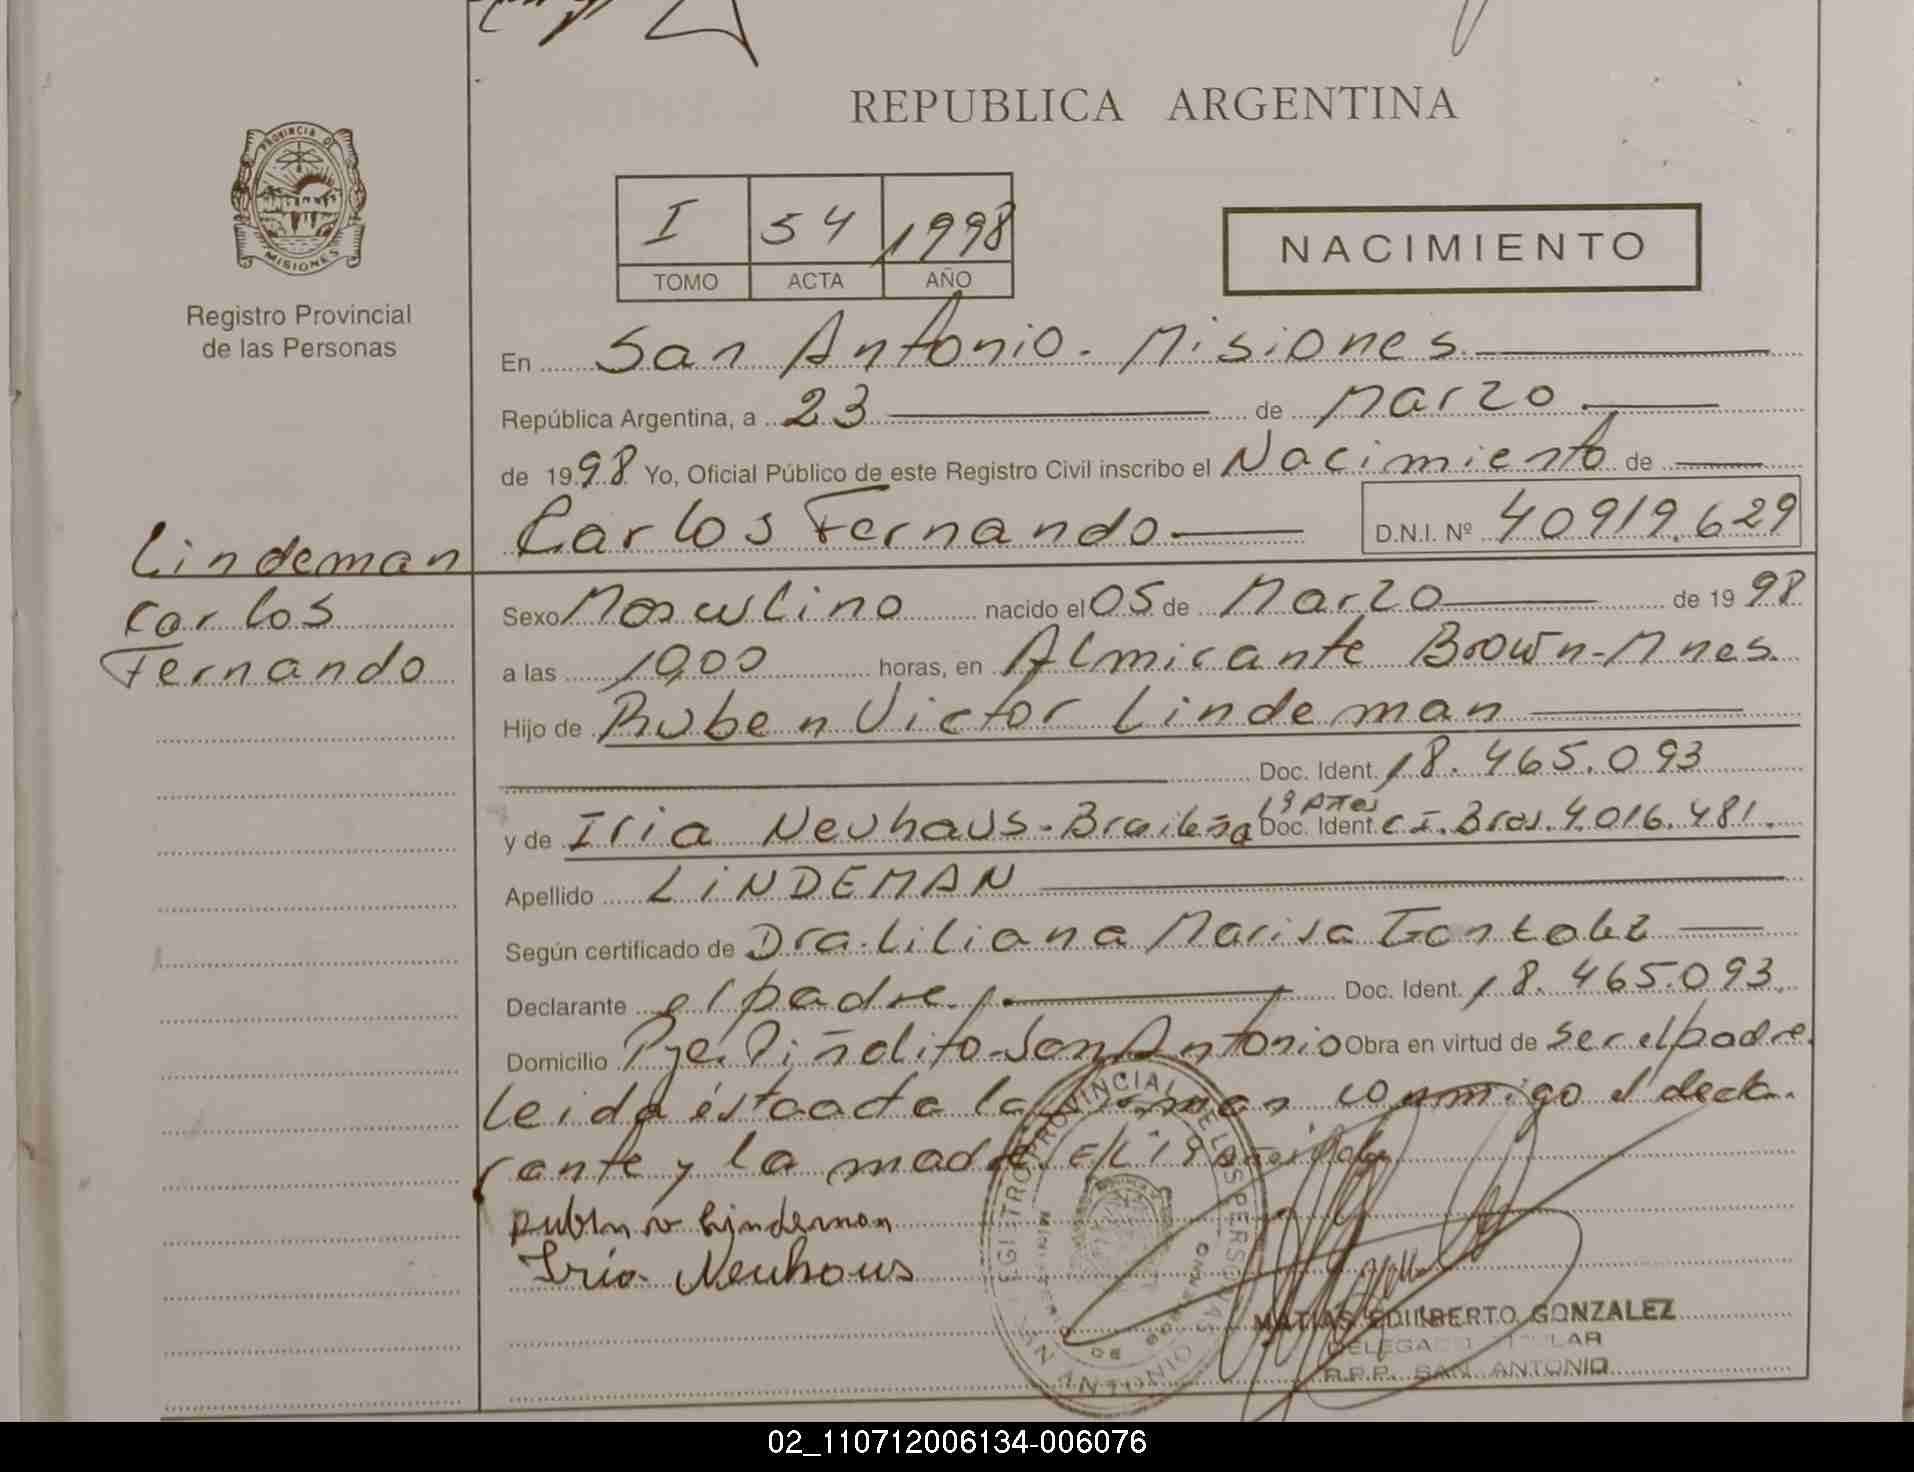 REPUBLICA ARGENTINA
PROVINCIA DE
MISIONES
Registro Provincial
de las Personas
I 54 1998
TOMO ACTA AÑO
NACIMIENTO
En San Antonio - Misiones
República Argentina, a 23 de Marzo
de 1998 Yo, Oficial Público de este Registro Civil inscribo el Nacimiento de
Carlos Fernando D.N.I. Nº 40919.629
Lindeman
Carlos
Fernando
Sexo Masculino nacido el 05 de Marzo de 1998
a las horas, en Almirante Brown-Mnes.
Hijo de Ruben Victor Lindeman
Doc. Ident. 18.465.093
y de Iria Neuhaus- Doc. Ident. C I. Bras. 4.016.481.
Apellido LINDEMAN
Según certificado de Dra. Liliana Marisa Gonzalez
Declarante el padre. Doc. Ident. 18.465.093.
Domicilio Pje. Piñalito-San Antonio Obra en virtud de ser el padre.
Leida ésta acta la firman conmigo el decla-
rante y la madre
Ruben v Lindeman
Iria Neuhaus
REGISTRO PROVINCIAL DE LAS PERSONAS
SAN ANTONIO
MATIAS EDILBERTO GONZALEZ
DELEGADO TITULAR
R.P.P. SAN ANTONIO
02_110712006134-006076